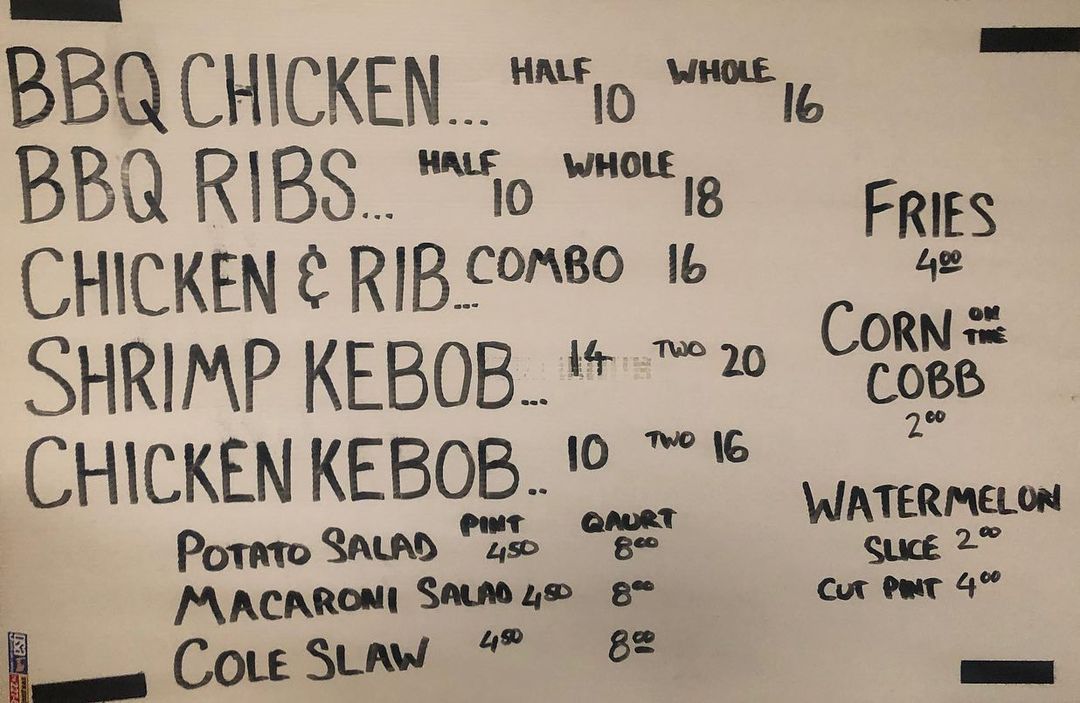 BBQ CHICKEN... HALF 10 WHOLE 16
BBQ RIBS... HALF 10 WHOLE 18
CHICKEN & RIB... COMBO 16
SHRIMP KEBOB... 14 TWO 20
CHICKEN KEBOB.. 10 TWO 16
PINT QAURT
POTATO SALAD 4.50 8.00
MACARONI SALAD 4.50 8.00
COLE SLAW 4.50 8.00
FRIES
4.00
CORN ON THE
COBB
2.00
WATERMELON
SLICE 2.00
CUT PINT 4.00